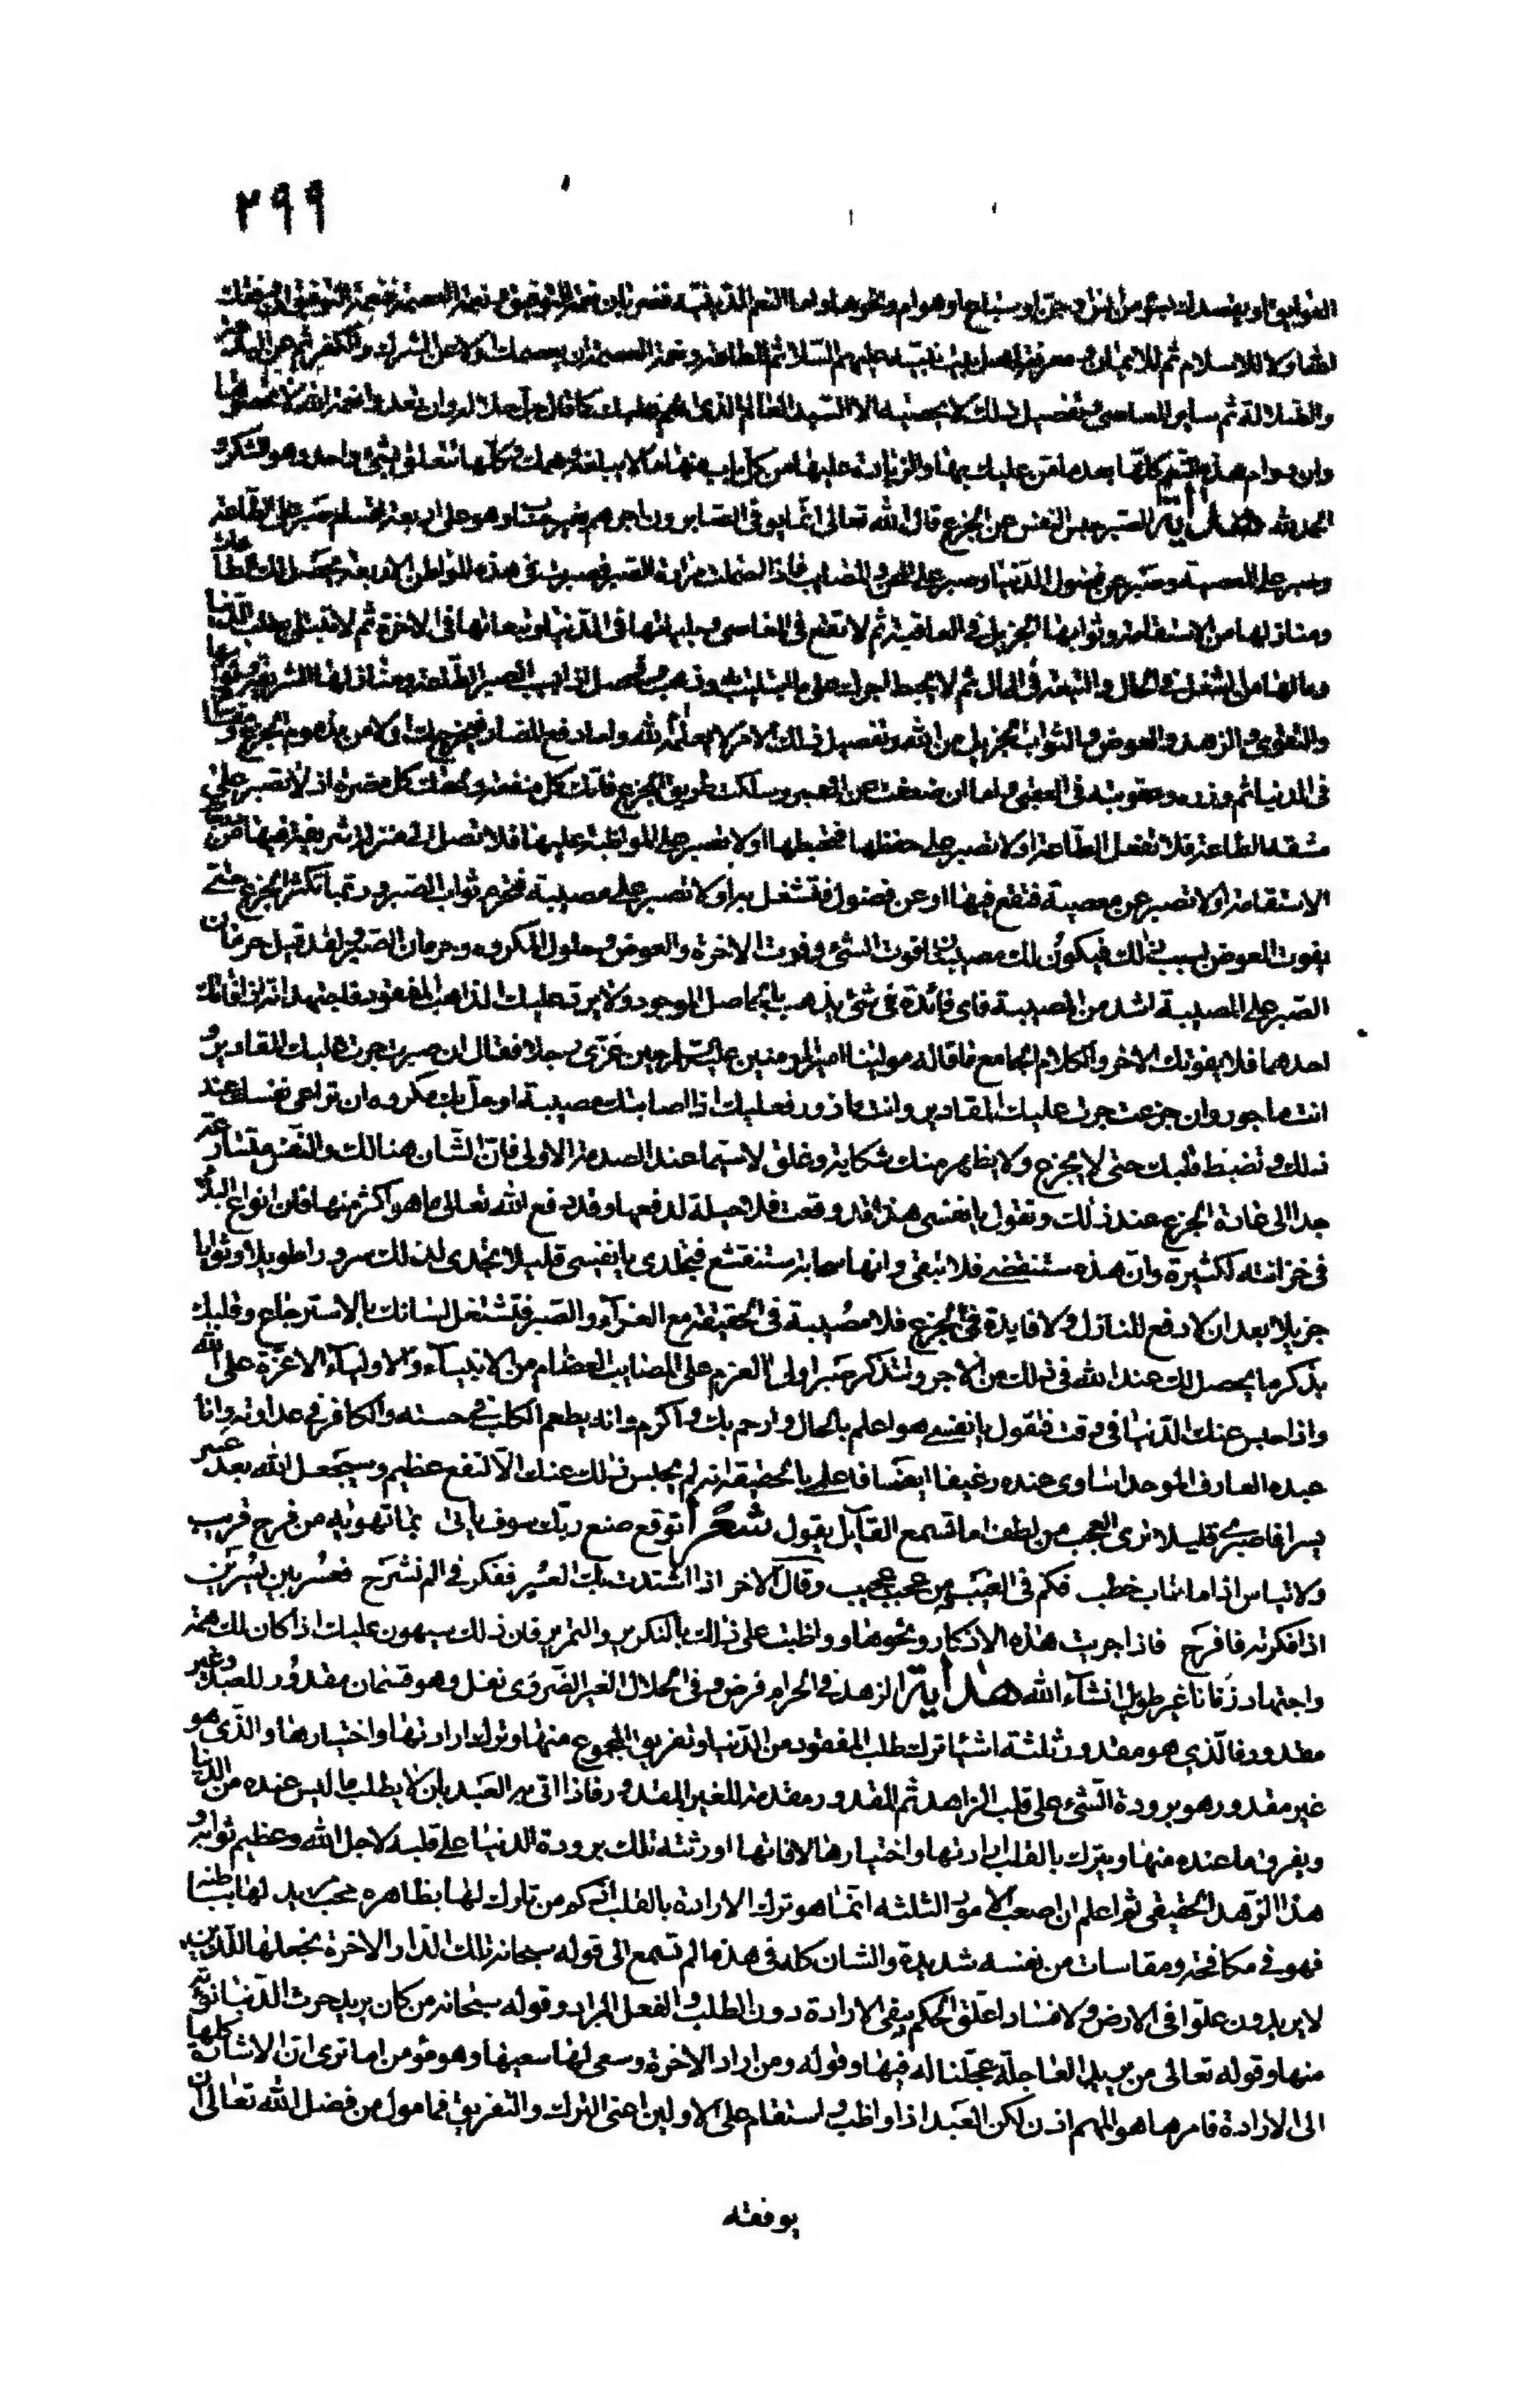 ٢٩٩
العوايق او يقصدك بشئ من انس وجن او سباع وهوام ونحوها واما النعم الدينية فضربان نعمة التوفيق ونعمة العصمة فنعمة التوفيق ان وفقك
الله اولا للاسلام ثم للايمان ومعرفة اهل بيت نبيه عليهم السلام ثم للطاعة ونعمة العصمة ان عصمك اولا عن الشرك والكفر ثم عن البدعة
والضلالة ثم ساير المعاصى وتفصيل ذلك لا يحصيه الا السيد العالم الذى انعم عليك كما قال جل جلاله وان تعدوا نعمة الله لا تحصوها
وان دوام هذه النعم كلها بعد ما من عليك بها والزيادة عليها من كل باب منها ما لا يبلغه وهمك كلها تتعلق بشئ واحد وهو الشكر و
الحمد لله هداية الصبر حبس النفس عن الجزع قال الله تعالى انما يوفى الصابرون اجرهم بغير حساب وهو على اربعة اقسام صبر على الطاعة
وصبر على المعصية وصبر عن فضول الدنيا وصبر على المحن والمصايب فاذا احتملت مرارة الصبر فصبرت فى هذه المواطن الاربعة يحصل لك الطاعات
ومنازلها من الاستقامة وثوابها الجزيل فى العاقبة ثم لا تقع فى المعاصى وبلياتها فى الدنيا وتبعاتها فى الاخرة ثم لا تبتلى بطلب الدنيا
وما لها من الشغل فى الحال والتبعة فى المال ثم لا يحبط اجرك على ما ابتليت به وذهب وتحصل اذا بسبب الصبر الطاعة ومنازلها الشريفة وثوابها
والتقوى والزهد والعوض والثواب الجزيل من الله وتفصيل ذلك الامر لا يعلمه الا الله واما دفع المضار فيزجيك اولا من مذموم الجزع ومقاساته
فى الدنيا ثم وزره وعقوبته فى العقبى واما ان ضعفت عن الصبر وسلكت طريق الجزع فاتك كل منفعة ولحقك كل مضرة اذ لا تصبر على
مشقة الطاعة فلا تفعل الطاعة او لا تصبر على حفظها فتحبطها او لا تصبر على المواظبة عليها فلا تصل الى منزلة شريفة فيها من
الاستقامة او لا تصبر عن معصية فتقع فيها او عن فضول فتشتغل به او لا تصبر على مصيبة فتحرم ثواب الصبر وربما تكثر الجزع حتى
يفوت العوض بسبب ذلك فيكون لك مصيبتان فوت الشئ وفوت الاخرة والعوض وحلول المكروه وحرمان الصبر ولقد قيل حرمان
الصبر على المصيبة اشد من المصيبة فاى فائدة فى شئ يذهب بالحاصل الموجود ولا يرد عليك الذاهب المفقود فاجتهد انه اذا فاتك
احدهما فلا يفوتك الاخر والكلام الجامع ما قاله مولينا امير المؤمنين عليه السلام حين عزى رجلا فقال ان صبرت جرت عليك المقادير و
انت ماجور وان جزعت جرت عليك المقادير وانت مازور فعليك اذا اصابتك مصيبة او حل بك مكروه ان تراعى نفسك عند
ذلك وتضبط قلبك حتى لا يجزع ولا يظهر منك شكاية وقلق لا سيما عند الصدمة الاولى فان الشان هنالك والنفس متسارعة
جدا الى عادة الجزع عند ذلك وتقول يا نفسى هذه قد وقعت فلا حيلة لدفعها وقد دفع الله تعالى ما هو اكثر منها فان انواع البلاء
فى خزانته لكثيرة وان هذه ستنقضى فلا تبقى وانها سحابة ستنقشع فتجلدى يا نفسى قليلا تجدى لذلك سرورا طويلا وثوابا
جزيلا بعد ان لا دفع للنازل ولا فايدة فى الجزع فلا مصيبة فى الحقيقة مع العزاء والصبر فتشتغل لسانك بالاسترجاع وقلبك
بذكر ما يحصل لك عند الله فى ذلك من الاجر وتتذكر صبر اولى العزم على المصايب العظام من الانبياء والاولياء الاعزة على الله
واذا حبس عنك الدنيا فى وقت فتقول يا نفسى هو اعلم بالحال وارحم بك واكرم وانه يطعم الكلب فى خسته والكافر فى عداوته وانا
عبده العارف الموحد اساوى عنده رغيفا ايضا فاعلمى بالحقيقة انه لم يحبس ذلك عنك الا لنفع عظيم وسيجعل الله بعد عسر
يسرا فاصبرى قليلا ترى العجب من لطفه اما تسمع القآيل يقول شعر توقع صنع ربك سوف ياتى بما تهويه من فرج قريب
ولا تياس اذا ما ناب خطب فكم فى الغيب من عجب عجيب وقال الاخر اذا اشتدت بك العسير ففكر فى الم نشرح فعسر بين يسرين
اذا فكرته فافرح فاذا جريت هذه الاذكار ونحوها وواظبت على ذلك بالتكرير والتمرين فان ذلك سيهون عليك اذا كان لك همة
واجتهاد زمانا غير طويل انشآء الله هداية الزهد فى الحرام فرض وفى الحلال الغير الضرورى نفل وهو قسمان مقدور للعبد وغير
مقدور فالذى هو مقدور ثلثة اشيا ترك طلب المفقود من الدنيا وتفريق المجموع منها وترك ارادتها واختيارها والذى هو
غير مقدور هو برودة الشئ على قلب الزاهد ثم المقدور مقدمة للغير المقدور فاذا اتى به العبد بان لا يطلب ما ليس عنده من الدنيا
ويفرق ما عنده منها ويترك بالقلب ارادتها واختيارها لافاتها اورثته تلك برودة الدنيا على قلبه لاجل الله وعظيم ثوابه و
هذا الزهد الحقيقى ثم اعلم ان اصعب الامور الثلثه انما هو ترك الارادة بالقلب اذ كم من تارك لها بظاهره محب مريد لها بباطنه
فهو فى مكافحة ومقاسات من نفسه شديدة والشان كله فى هذه الم تسمع الى قوله سبحانه تلك الدار الاخرة نجعلها للذين
لا يريدون علوا فى الارض ولا فسادا علق الحكم بنفى الارادة دون الطلب والفعل المراد وقوله سبحانه من كان يريد حرث الدنيا نؤته
منها وقوله تعالى من يريد العاجلة عجلنا له فيها وقوله ومن اراد الاخرة وسعى لها سعيها وهو مؤمن اما ترى ان الاشارة كلها
الى الارادة فامرها هو المهم اذن لكن العبد اذا واظب واستقام على الاولين اعنى الترك والتفريق فمامول من فضل الله تعالى ان
يوفقه